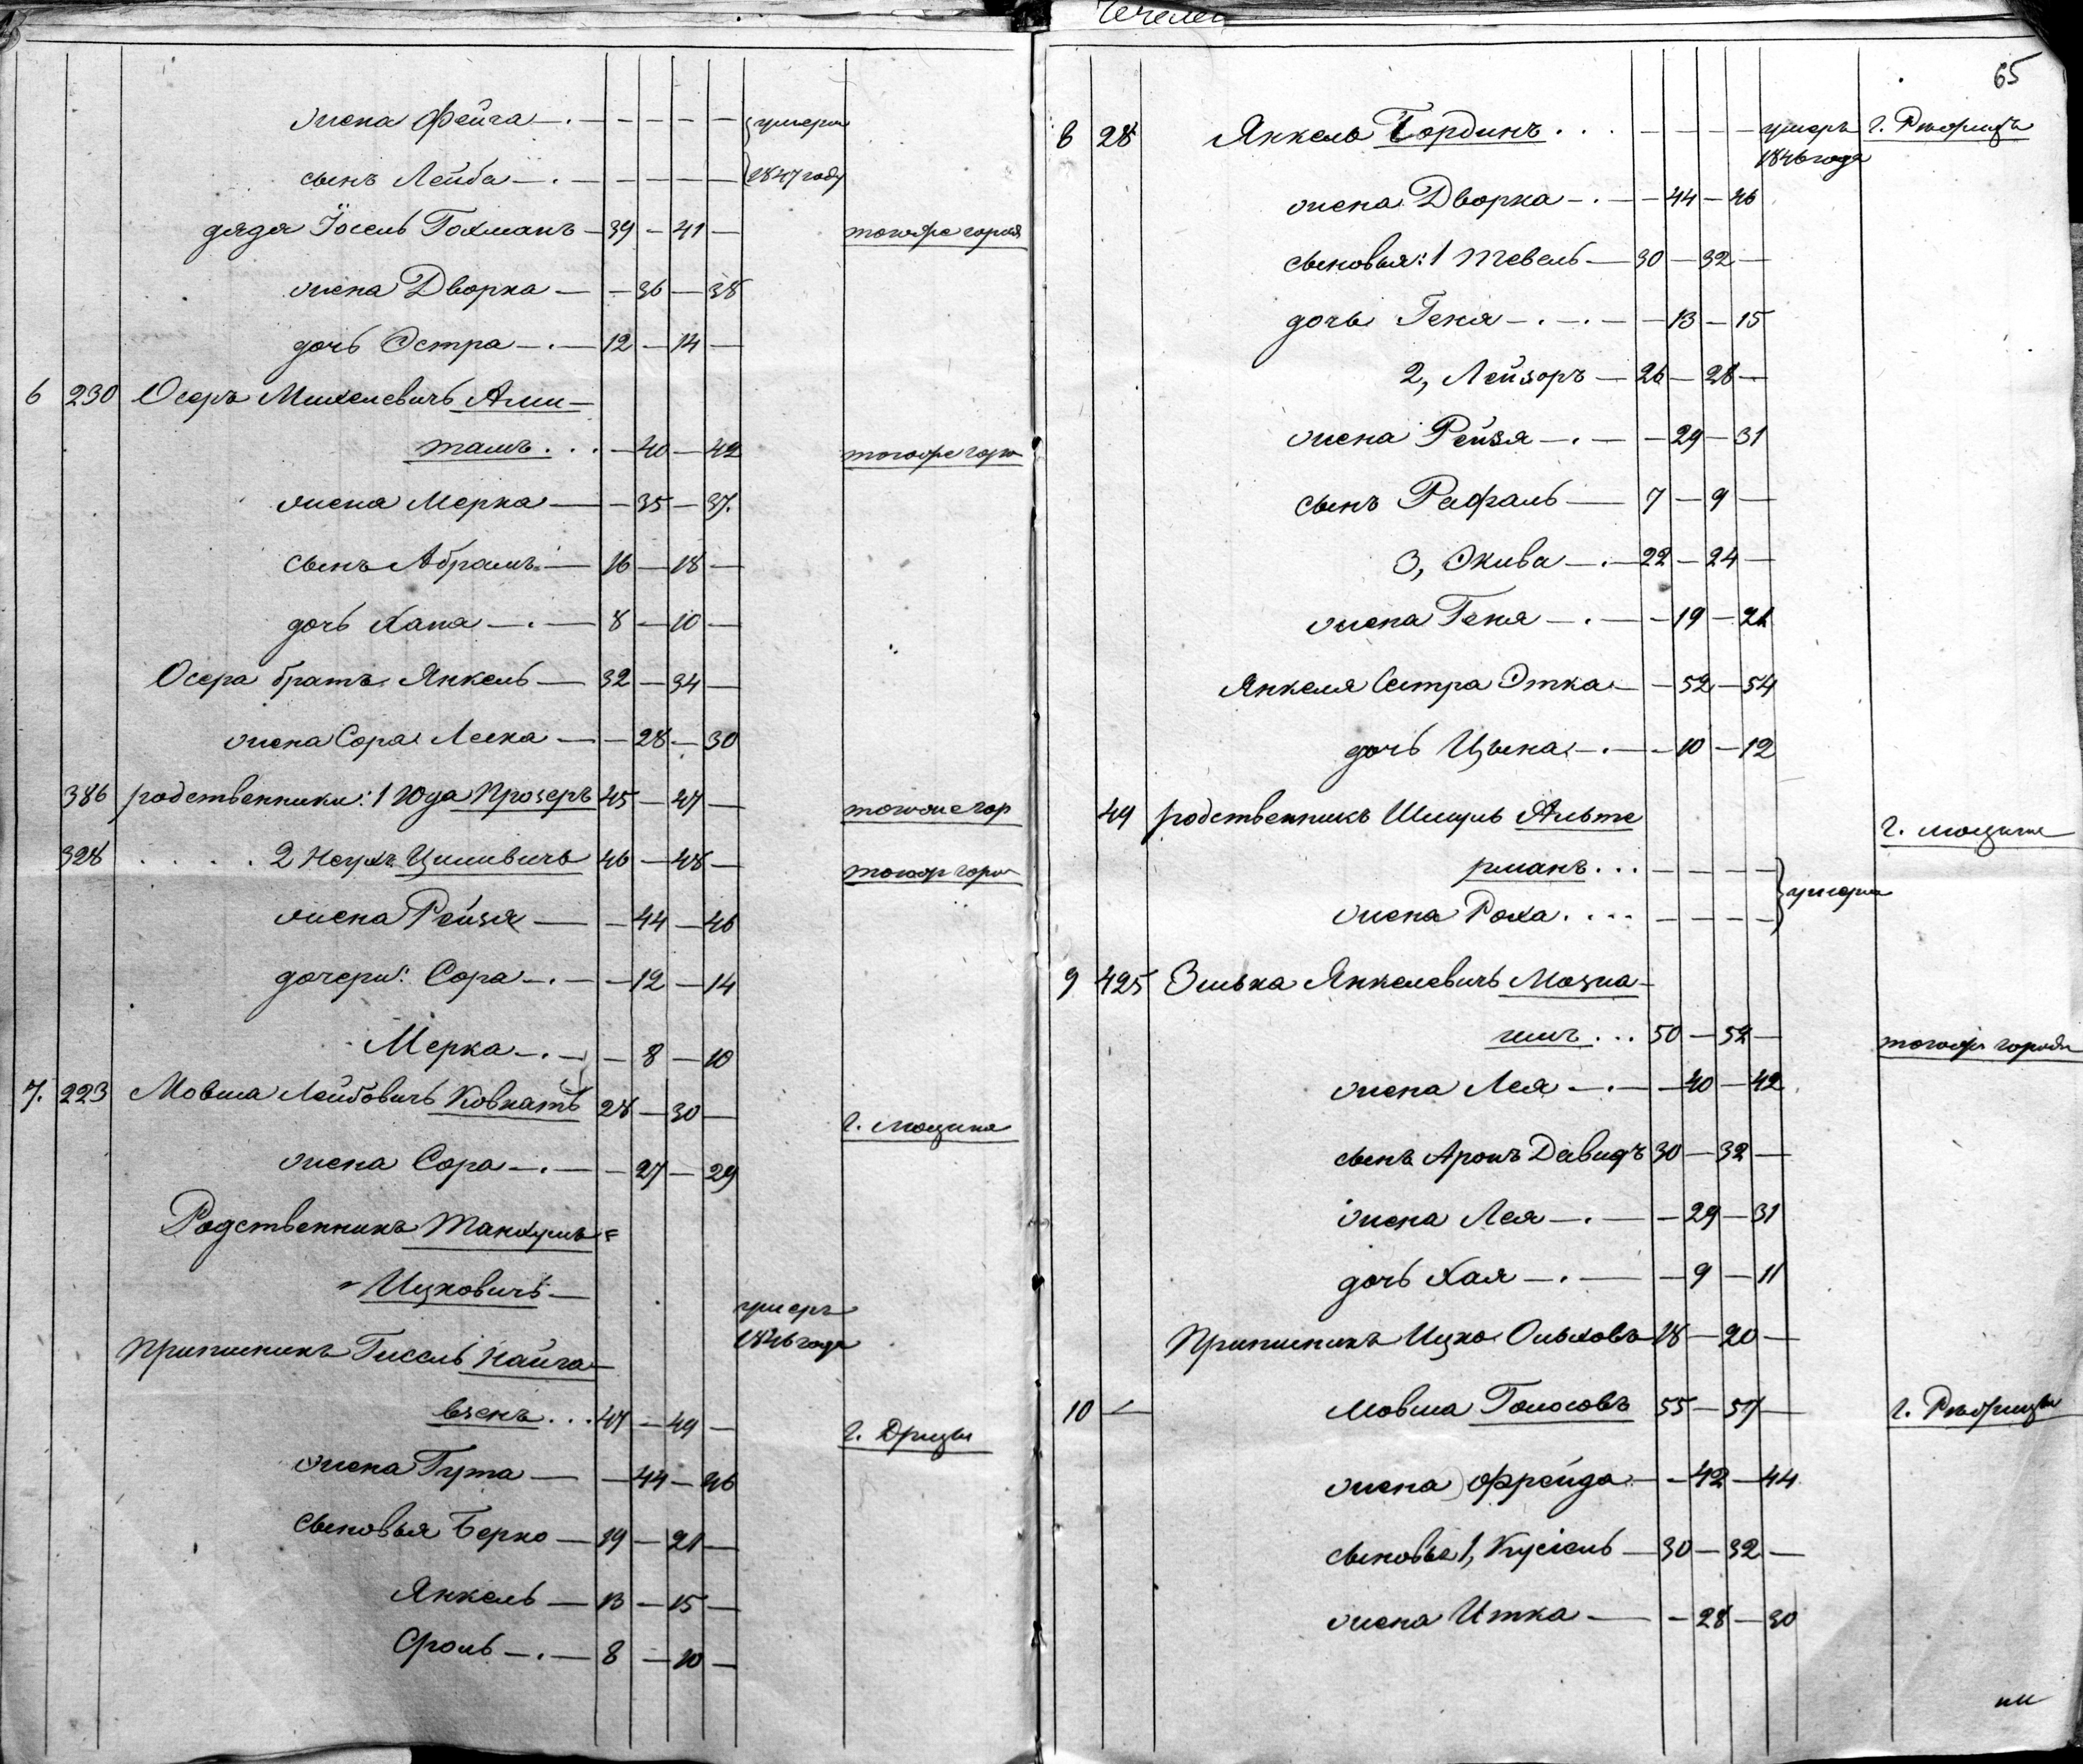 жена Фейга — . — — — — — умерли
сынъ Лейба — . — — — — — 1847 году
дядя Іосель Гохманъ — 39 — 41 — тогоже города
жена Дворка — — 36 — 38
дочь Эстра — . — 12 — 14 —
6 230 Осеръ Михелевичъ Ами-
тамъ . . . — 40 — 42 тогоже горо
жена Мерка — — 35 — 37.
сынъ Абрамъ — 16 — 18 —
дочь Хана — . — 8 — 10 —
Осера братъ Янкель — 32 — 34 —
жена Сора Леека — — 28 — 30
386 родственники: 1 Юда Прозеръ 45 — 47 — тогоже гор
328 . . . . 2 Ноухъ Цилевичъ 46 — 48 — тогож горо
жена Рейзя — — 44 — 46
дочери: Сора — . — — 12 — 14
Мерка — . — — 8 — 10
7. 223 Мовша Лейбовичъ Ковнатъ 28 — 30 — г. Люцина
жена Сора — . — — 27 — 29
Родственникъ Танхумъ =
= Ицковичъ — умеръ
1846 года
Приписникъ Гисель Кайга-
взенъ . . . 47 — 49 — г. Дризы
жена Гута — — 44 — 46
сыновья Берко — 19 — 21 —
Янкель — 13 — 15 —
Сроль — . — 8 — 10 —
65
8 28 Янкель Гординъ . . . — — — — умеръ г. Рѣжицы
1846 года
жена Дворка — . — — 44 — 46
сыновья: 1 Тевель — 30 — 32 —
дочь Геня — . — . — — 13 — 15
2, Лейзоръ — 26 — 28 —
жена Рейзя — . — — 29 — 31
сынъ Рафаль — 7 — 9 —
3, Экива — . — 22 — 24 —
жена Геня — . — — 19 — 21
Янкеля Сестра Этка — — 52 — 54
дочь Цына — . — — 10 — 12
49 родственникъ Шмуль Альте г. Люцина
рманъ . . . — — — — умерли
жена Роха . . . . — — — —
9 425 Зелька Янкелевичъ Мозна-
имъ . . . 50 — 52 — тогоже города
жена Лея — . — — 40 — 42
сынъ Аронъ Давидъ 30 — 32 —
жена Лея — . — — 29 — 31
дочь Хая — . — — 9 — 11
Приписникъ Ицко Ольховъ 18 — 20 —
10 — Мовша Голосовъ 55 — 57 — г. Рѣжицы
жена Фрейда — — 42 — 44
сыновья 1, Кусіель — 30 — 32 —
жена Итка — — 28 — 30